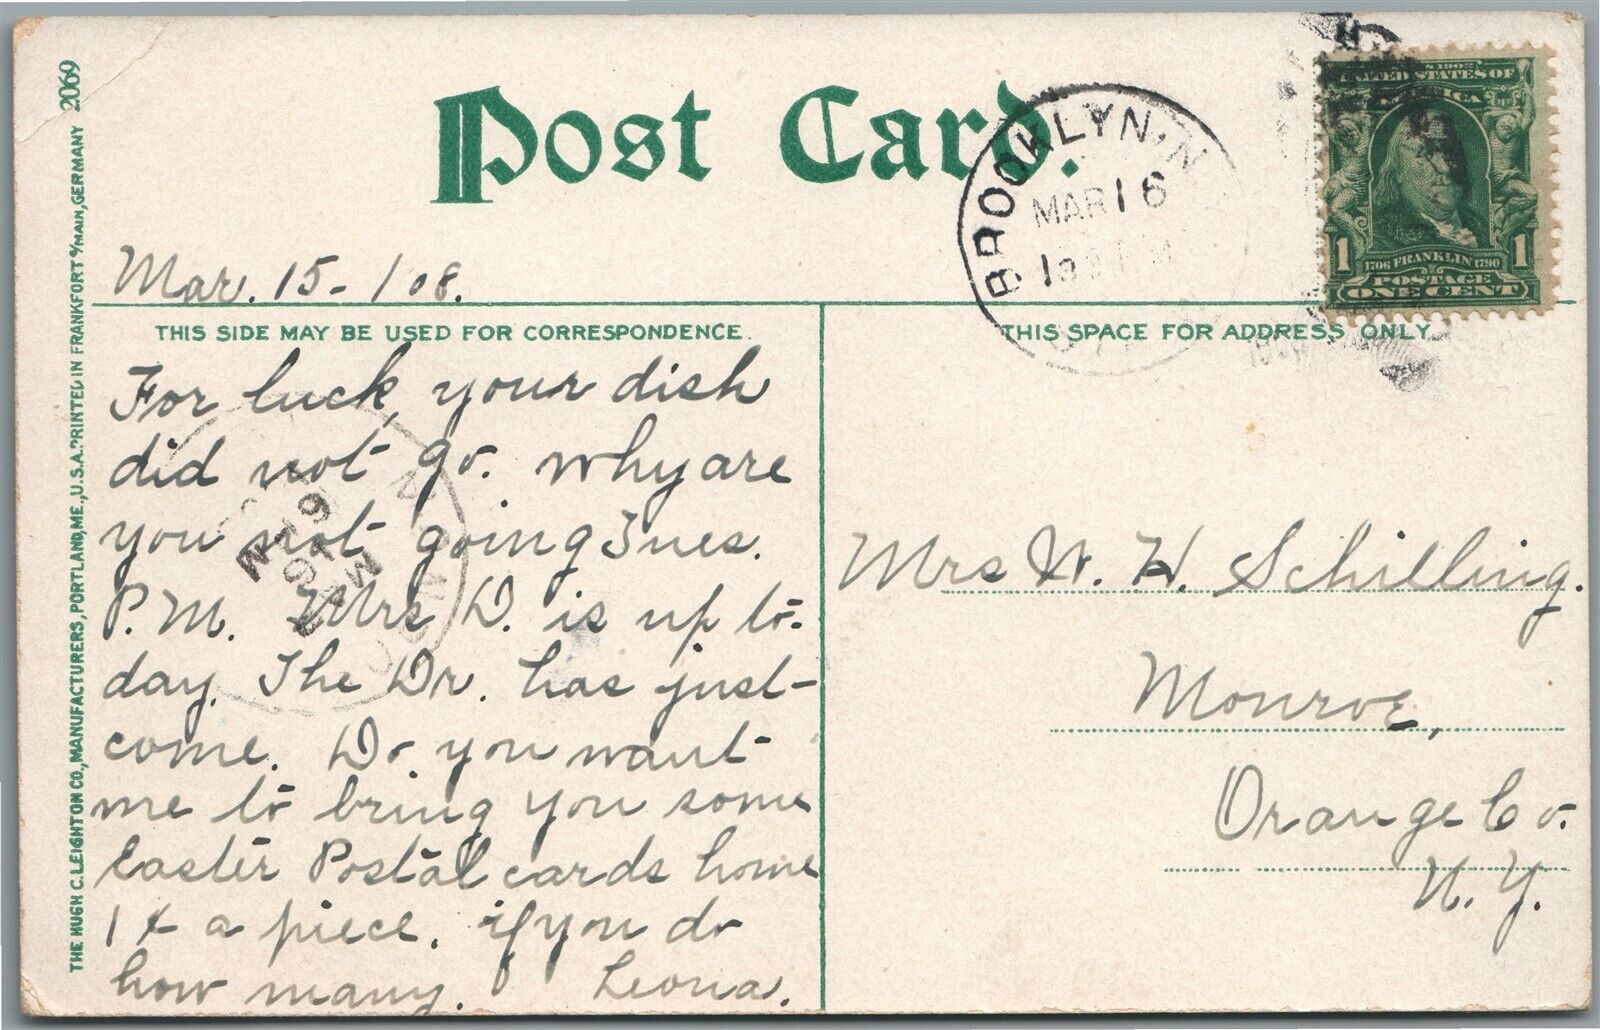 Post Card.
BROOKLYN, N
MAR 16
UNITED STATES OF
AMERICA
1 1
1706 FRANKLIN 1790
POSTAGE
ONE CENT
Mar. 15 - 108.
THIS SIDE MAY BE USED FOR CORRESPONDENCE.
For luck, your dish
did not go. Why are
you not going Tues.
P.M. Mrs D. is up to-
day. The Dr. has just
come. Do you want
me to bring you some
Easter Postal cards home
1¢ a piece. if you do
how many. Leona.
THIS SPACE FOR ADDRESS ONLY.
Mrs W. H. Schilling.
Monroe,
Orange Co.
N. Y.
THE HUGH C. LEIGHTON CO., MANUFACTURERS, PORTLAND, ME., U.S.A. PRINTED IN FRANKFORT o/MAIN, GERMANY 2069